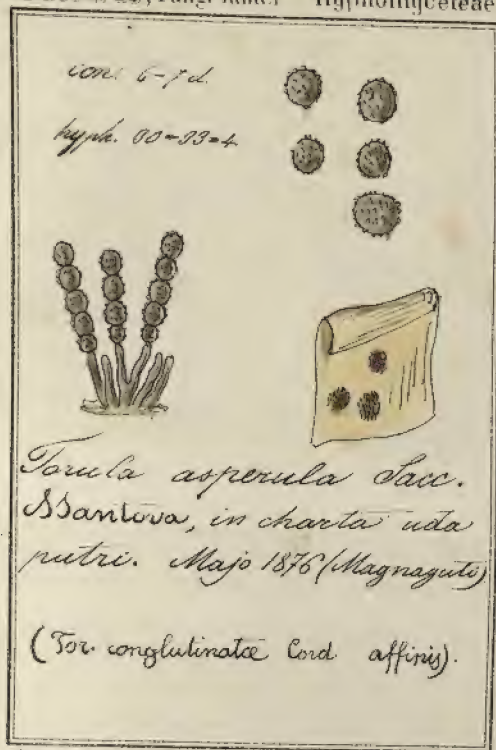 Fungi Hyphomyceteae
con: 6-7 d.
hyph. 00=33=4
Torula asperula Sacc.
Mantova, in charta uda
putri. Majo 1876 (Magnaguti)
(Tor. conglutinatæ Cord. affinis).